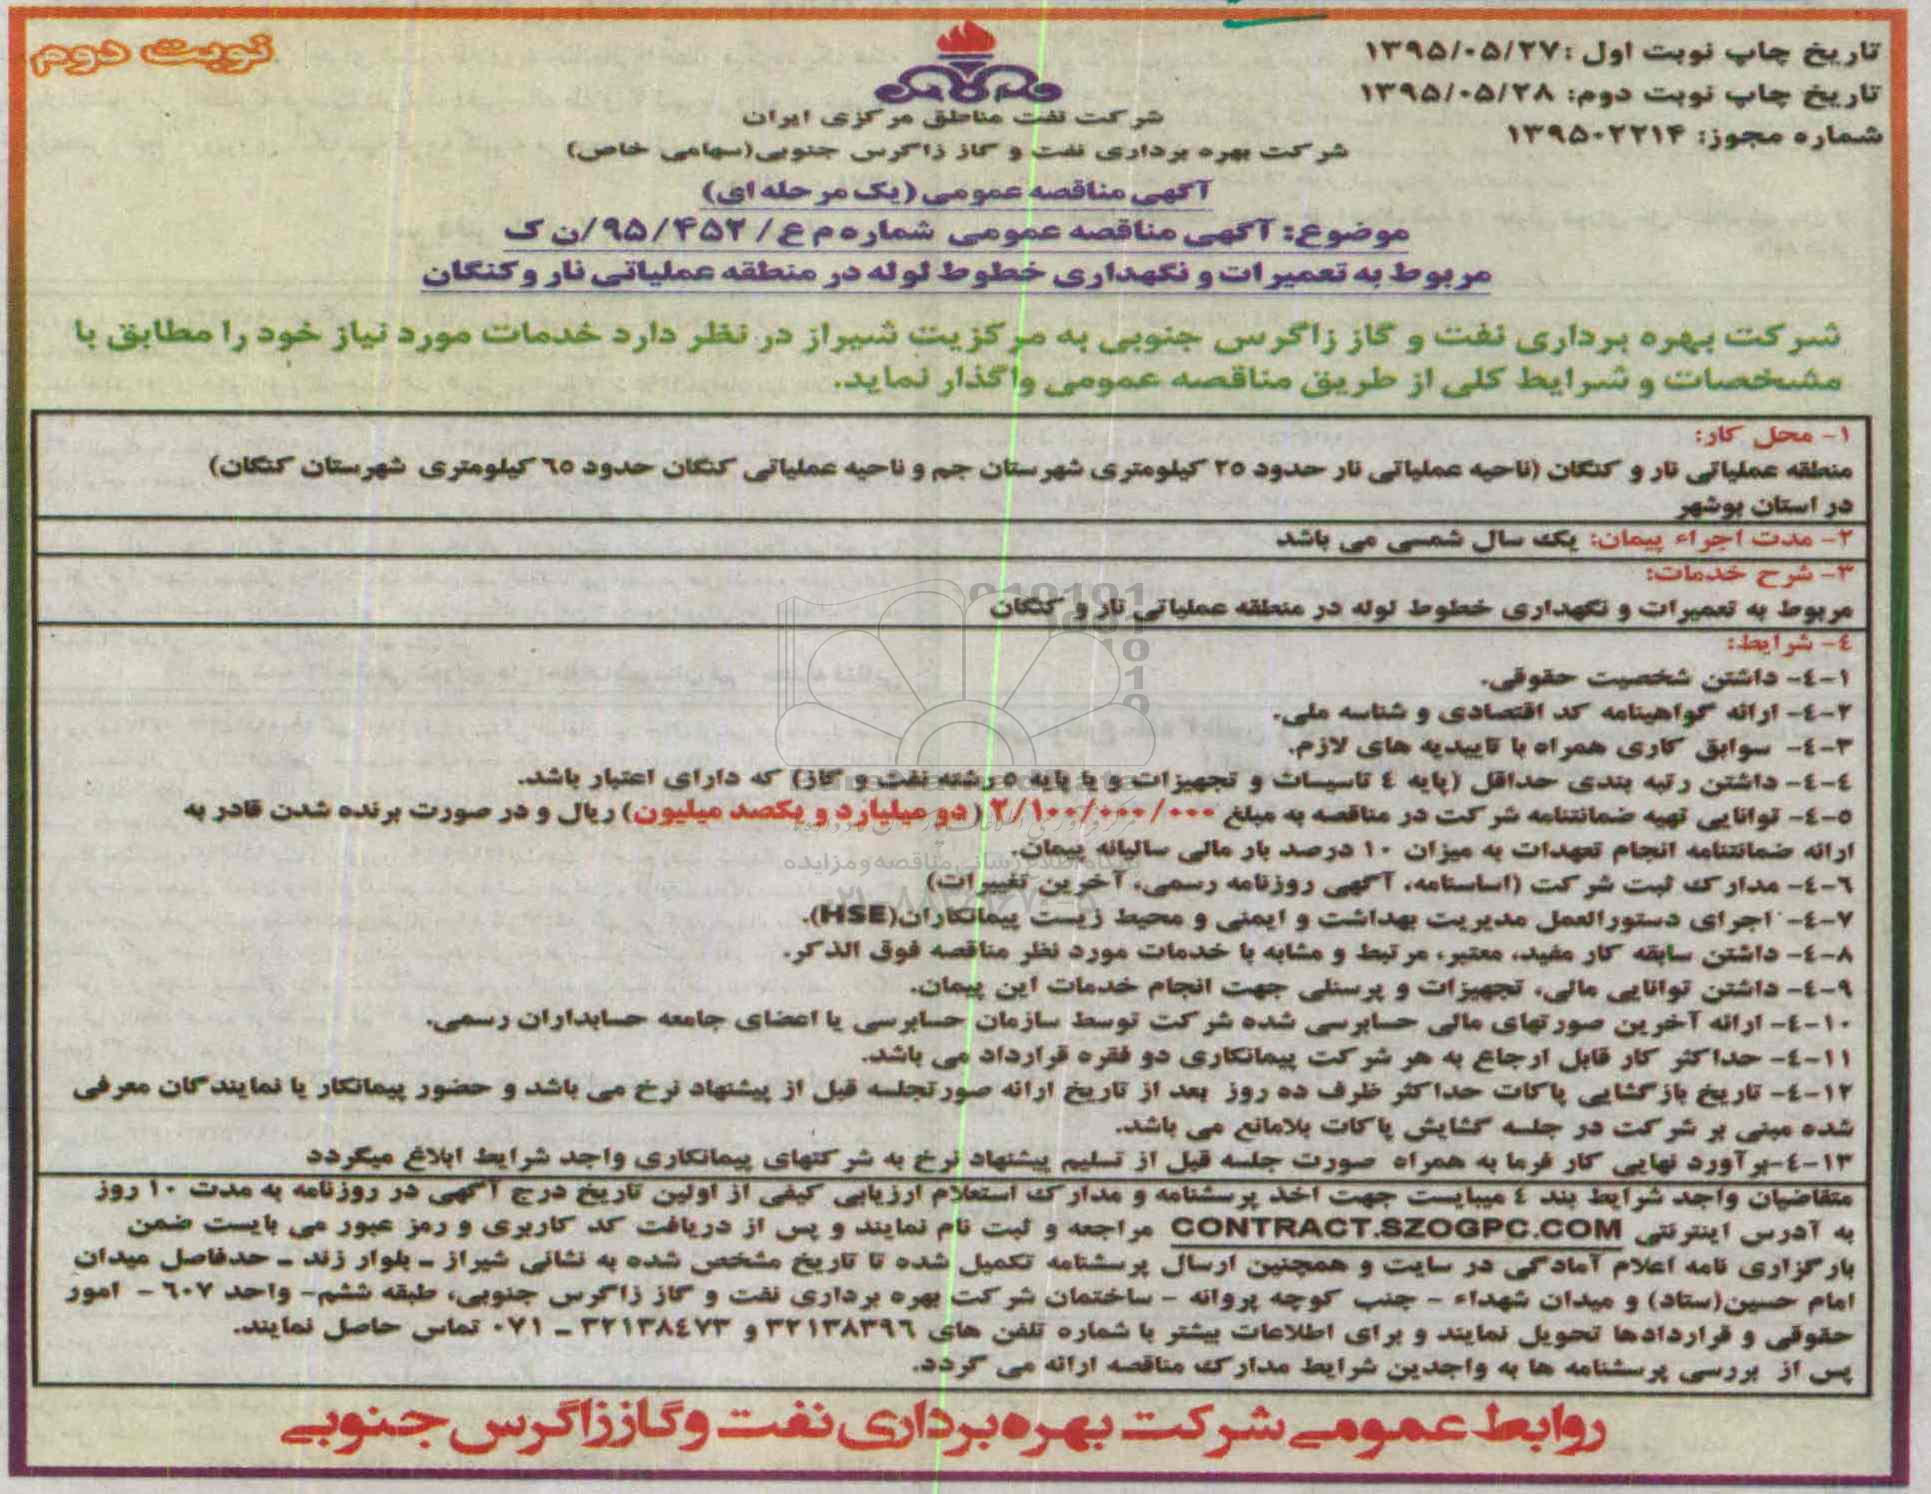 تاریخ چاپ نوبت اول :۱۳۹۵/۰۵/۲۷
تاریخ چاپ نوبت دوم: ۱۳۹۵/۰۵/۲۸
شماره مجوز: ۱۳۹۵۰۲۲۱۴
نوبت دوم
شرکت نفت مناطق مرکزی ایران
شرکت بهره برداری نفت و گاز زاگرس جنوبی(سهامی خاص)
آگهی مناقصه عمومی (یک مرحله ای)
موضوع: آگهی مناقصه عمومی شماره م ع/ ۹۵/۴۵۲/ن ک
مربوط به تعمیرات و نگهداری خطوط لوله در منطقه عملیاتی نار و کنگان
شرکت بهره برداری نفت و گاز زاگرس جنوبی به مرکزیت شیراز در نظر دارد خدمات مورد نیاز خود را مطابق با
مشخصات و شرایط کلی از طریق مناقصه عمومی واگذار نماید.
۱- محل کار:
منطقه عملیاتی نار و کنگان (ناحیه عملیاتی نار حدود ۲۵ کیلومتری شهرستان جم و ناحیه عملیاتی کنگان حدود ۶۵ کیلومتری شهرستان کنگان)
در استان بوشهر
۲- مدت اجراء پیمان: یک سال شمسی می باشد
۳- شرح خدمات:
مربوط به تعمیرات و نگهداری خطوط لوله در منطقه عملیاتی نار و کنگان
۴- شرایط:
۴-۱- داشتن شخصیت حقوقی.
۴-۲- ارائه گواهینامه کد اقتصادی و شناسه ملی.
۴-۳- سوابق کاری همراه با تاییدیه های لازم.
۴-۴- داشتن رتبه بندی حداقل (پایه ۴ تاسیسات و تجهیزات و یا پایه ۵ رشته نفت و گاز) که دارای اعتبار باشد.
۴-۵- توانایی تهیه ضمانتنامه شرکت در مناقصه به مبلغ ۲/۱۰۰/۰۰۰/۰۰۰ (دو میلیارد و یکصد میلیون) ریال و در صورت برنده شدن قادر به
ارائه ضمانتنامه انجام تعهدات به میزان ۱۰ درصد بار مالی سالیانه پیمان.
۴-۶- مدارک ثبت شرکت (اساسنامه، آگهی روزنامه رسمی، آخرین تغییرات)
۴-۷- اجرای دستورالعمل مدیریت بهداشت و ایمنی و محیط زیست پیمانکاران(HSE).
۴-۸- داشتن سابقه کار مفید، معتبر، مرتبط و مشابه با خدمات مورد نظر مناقصه فوق الذکر.
۴-۹- داشتن توانایی مالی، تجهیزات و پرسنلی جهت انجام خدمات این پیمان.
۴-۱۰- ارائه آخرین صورتهای مالی حسابرسی شده شرکت توسط سازمان حسابرسی یا اعضای جامعه حسابداران رسمی.
۴-۱۱- حداکثر کار قابل ارجاع به هر شرکت پیمانکاری دو فقره قرارداد می باشد.
۴-۱۲- تاریخ بازگشایی پاکات حداکثر ظرف ده روز بعد از تاریخ ارائه صورتجلسه قبل از پیشنهاد نرخ می باشد و حضور پیمانکار یا نمایندگان معرفی
شده مبنی بر شرکت در جلسه گشایش پاکات بلامانع می باشد.
۴-۱۳-برآورد نهایی کار فرما به همراه صورت جلسه قبل از تسلیم پیشنهاد نرخ به شرکتهای پیمانکاری واجد شرایط ابلاغ میگردد
متقاضیان واجد شرایط بند ۴ میبایست جهت اخذ پرسشنامه و مدارک استعلام ارزیابی کیفی از اولین تاریخ درج آگهی در روزنامه به مدت ۱۰ روز
به آدرس اینترنتی CONTRACT.SZOGPC.COM مراجعه و ثبت نام نمایند و پس از دریافت کد کاربری و رمز عبور می بایست ضمن
بارگزاری نامه اعلام آمادگی در سایت و همچنین ارسال پرسشنامه تکمیل شده تا تاریخ مشخص شده به نشانی شیراز ـ بلوار زند ـ حدفاصل میدان
امام حسین(ستاد) و میدان شهداء - جنب کوچه پروانه - ساختمان شرکت بهره برداری نفت و گاز زاگرس جنوبی، طبقه ششم- واحد ۶۰۷ - امور
حقوقی و قراردادها تحویل نمایند و برای اطلاعات بیشتر با شماره تلفن های ۳۲۱۳۸۳۹۶ و ۳۲۱۳۸۴۷۳ ـ ۰۷۱ تماس حاصل نمایند.
پس از بررسی پرسشنامه ها به واجدین شرایط مدارک مناقصه ارائه می گردد.
روابط عمومی شرکت بهره برداری نفت و گاز زاگرس جنوبی